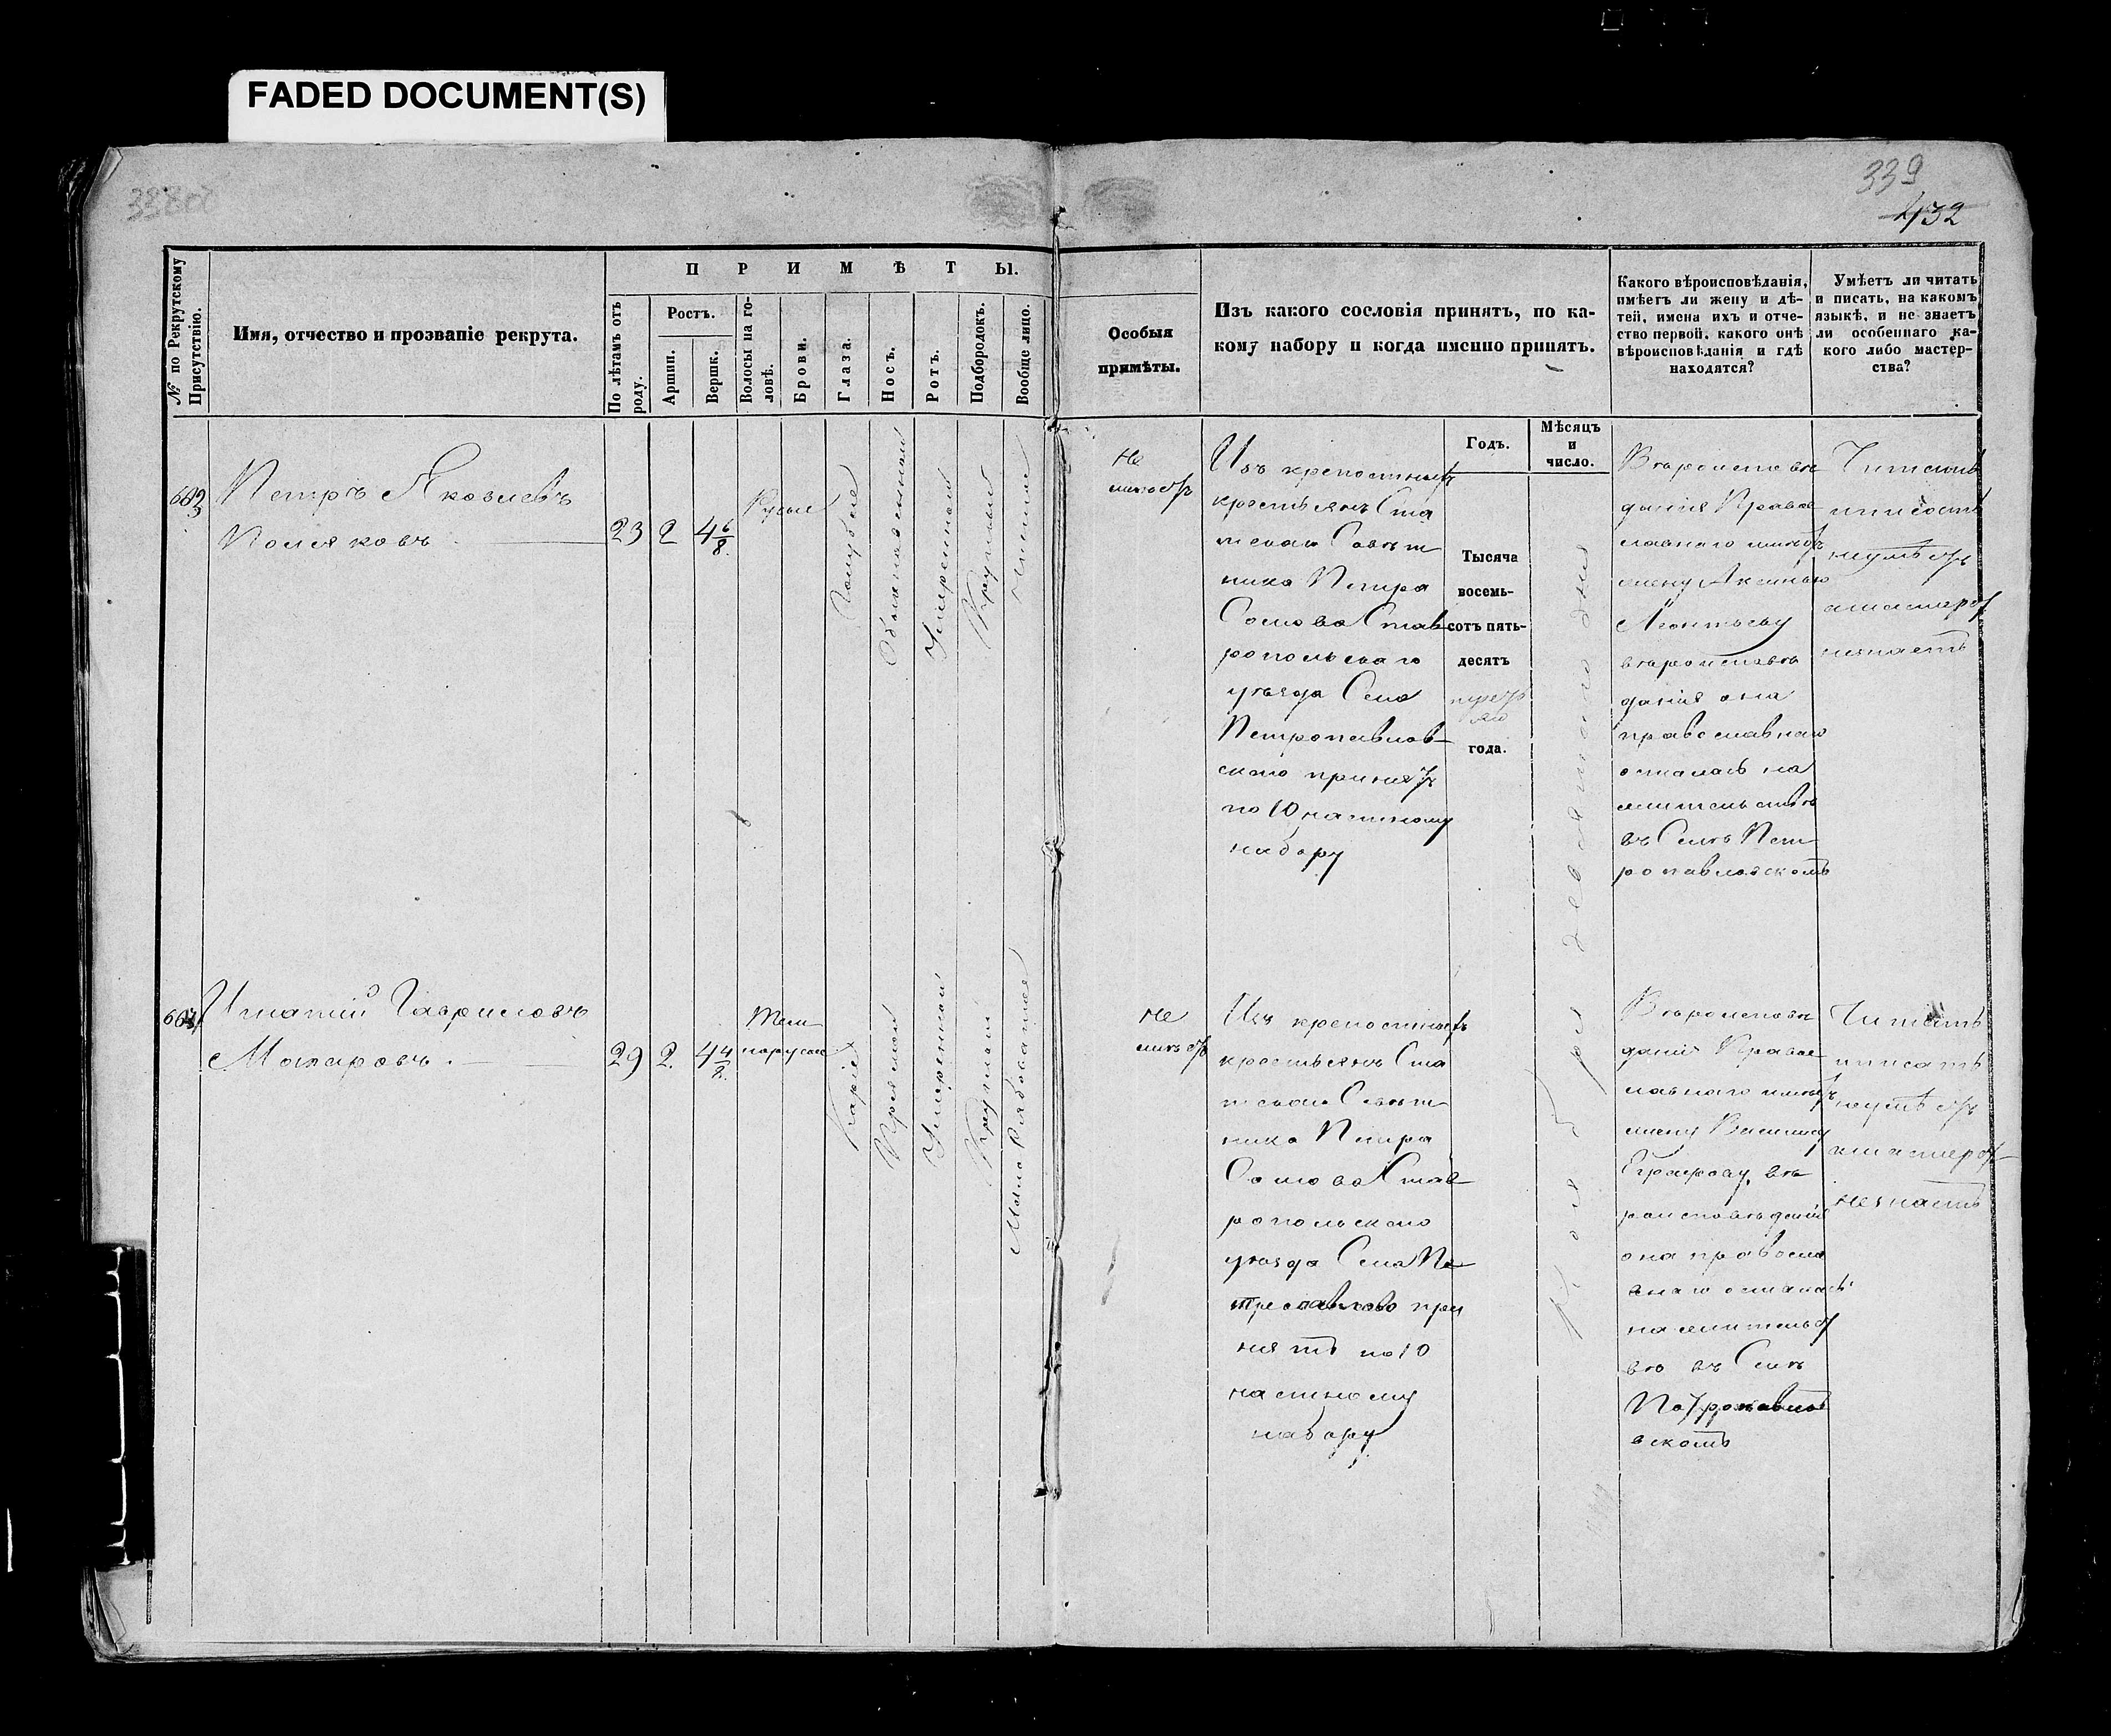 FADED DOCUMENT(S)
339
432
№ по Рекрутскому Присутствію.
Имя, отчество и прозваніе рекрута.
ПРИМѢТЫ.
По лѣтамъ отъ роду.
Ростъ.
Аршин.
Вершек.
Волосы на головѣ.
Брови.
Глаза.
Носъ.
Ротъ.
Подбородокъ.
Вообще лицо.
Особыя
примѣты.
Изъ какого сословія принятъ, по ка-
кому набору и когда именно принятъ.
Какого вѣроисповѣданія,
имѣетъ ли жену и дѣ-
тей, имена ихъ и отче-
ство первой, какого онѣ
вѣроисповѣданія и гдѣ
находятся?
Умѣетъ ли читать
и писать, на какомъ
языкѣ, и не знаетъ
ли особеннаго ка-
кого либо мастер-
ства?
Годъ.
Мѣсяцъ
и
число.
603
Петръ Яковлевъ
Поляковъ
23 2 4 6/8
Русые
Голубые
Обыкновенный
Умѣренный
Круглый
Чистое
Не
имѣетъ
Изъ крепостныхъ
крестьянъ Ста
тскаго Совѣт
ника Петра
Став
ропольскаго
уѣзда Села
Петропавлов-
скаго принятъ
по 10 частному
набору
Тысяча
восемь-
сотъ пять-
десятъ
года.
Ноября девятаго дня
Вѣроисповѣ
данія Правос
лавнаго имѣетъ
жену Аксинью
Леонтьеву
вѣроисповѣ
данія она
православнаго
осталась на
жительствѣ
въ Селѣ Пет
ропавловскомъ
Читать
писать
неумѣетъ
мастерст
незнаетъ
604
Игнатій Гавриловъ
Макаровъ.
29 2 4 4/8
Тем
норусые
Каріе
Прямой
Умѣренный
Круглый
Мало Рябоватое
Не
имѣетъ
Изъ крепостныхъ
крестьянъ Ста
тскаго Совѣт
ника Петра
Став
ропольскаго
уѣзда Села Пе
тропавлово при
нятъ по 10
частному
набору
Вѣроисповѣ
данія Правос
лавнаго имѣетъ
жену Василису
Егорову, вѣ
роисповѣданія
она правосла
внаго осталась
на жительст
во въ Селѣ
Петропавло
вскомъ
Читать
писать
неумѣетъ
мастерст
незнаетъ